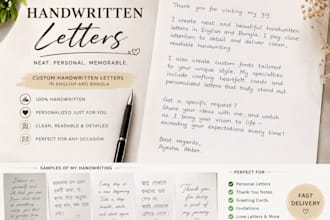 HANDWRITTEN
Letters
NEAT. PERSONAL. MEMORABLE.
CUSTOM HANDWRITTEN LETTERS
IN ENGLISH AND BANGLA
100% HANDWRITTEN
PERSONALIZED JUST FOR YOU
CLEAN, READABLE & DETAILED
PERFECT FOR ANY OCCASION
Thank you for visiting my gig.
I create neat and beautiful handwritten
letters in English and Bangla. I pay close
attention to detail and deliver clean,
readable handwriting.
I also create custom fonts tailored
to your unique style. My specialties
include crafting heartfelt cards and
personalized letters that truly stand out.
Got a specific request?
Share your ideas with me, and watch
as I bring your vision to life –
exceeding your expectations every time!
Best regards,
Ayesha Akter
SAMPLES OF MY HANDWRITING
Every day is
a new
beginning.
Take a deep
breath, smile,
and start
again.
Thank you
for being
a part of
my journey.
PERFECT FOR
Personal Letters
Thank You Notes
Greeting Cards
Invitations
Love Letters & More
FAST
DELIVERY